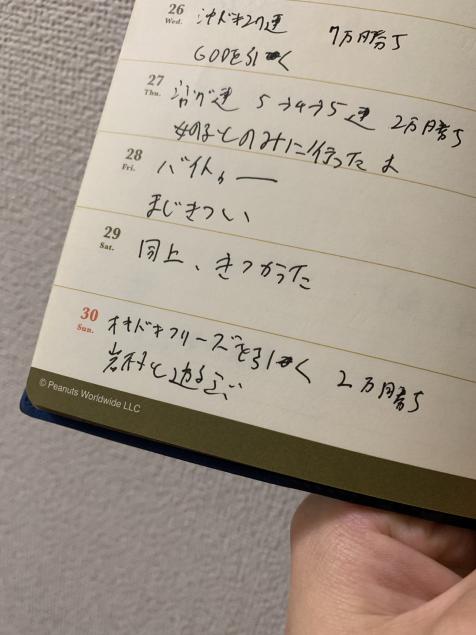 26 沖ドキ27連 7万円勝ち
Wed.
GODを引く
27 ジャグ連 5→4→5連 2万円勝ち
Thu.
女の子とのみに行ったよ
28 バイト、
Fri.
まじきつい
29 同上、きつかった
Sat.
30 オキドキフリーズを引く 2万円勝ち
Sun.
岩村と
© Peanuts Worldwide LLC